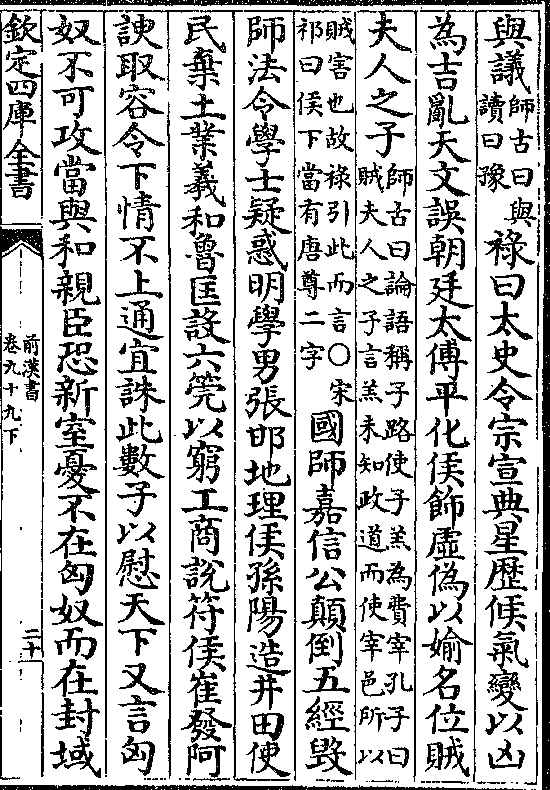 與議師古曰與讀曰豫祿曰太史令宗宣典星歴候氣變以凶
為吉亂天文誤朝廷太傅平化侯飾虛偽以媮名位賊
夫人之子師古曰論語稱子路使子羔為費宰孔子曰賊夫人之子言羔未知政道而使宰邑所以
賊害也故祿引此而言○宋祁曰侯下當有唐尊二字國師嘉信公顛倒五經毀
師法令學士疑惑明學男張邯地理侯孫陽造井田使
民棄土業羲和魯匡設六筦以窮工商說符侯崔發阿
諛取容令下情不上通宜誅此數子以慰天下又言匈
奴不可攻當與和親臣恐新室憂不在匈奴而在封域
欽定四庫全書
前漢書
卷九十九下
二十